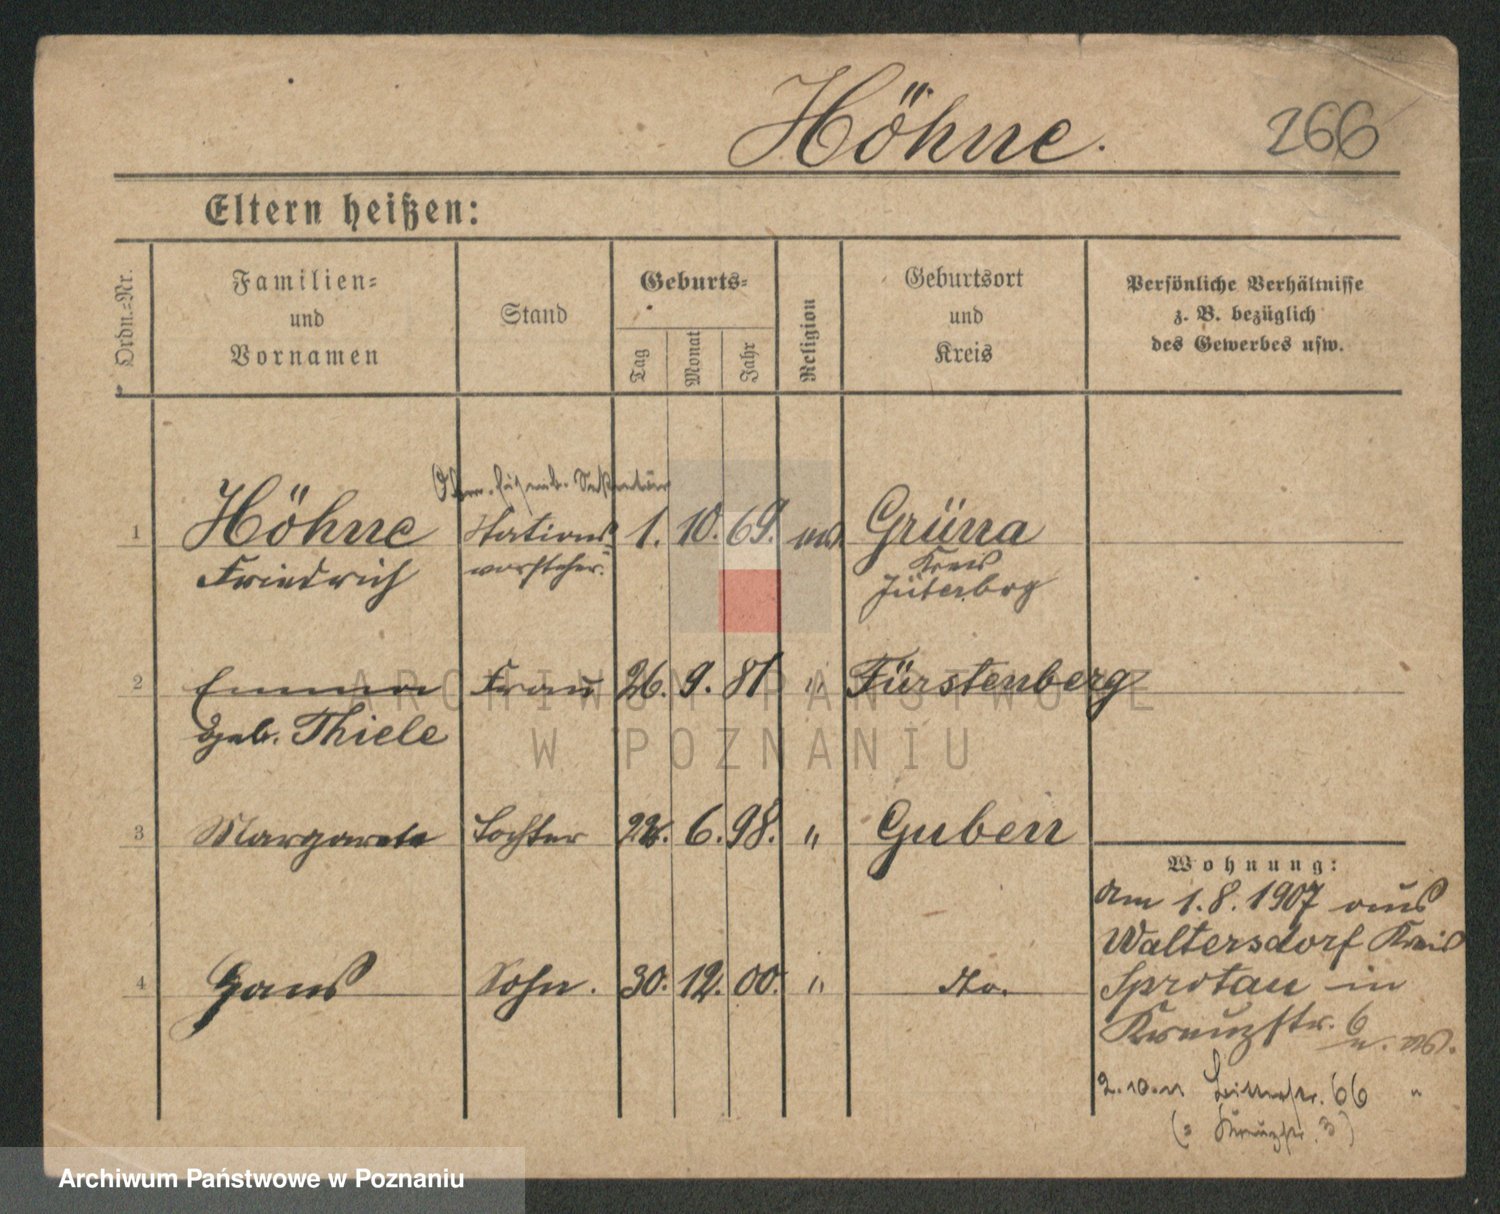 Höhne.
266
Eltern heißen:
Ordn.=Nr.
Familien=
und
Vornamen
Stand
Geburts=
Tag
Monat
Jahr
Religion
Geburtsort
und
Kreis
Persönliche Verhältnisse
z. B. bezüglich
des Gewerbes usw.
1 Höhne Stations 1. 10. 69. ev. Grüna
Friedrich vorsteher. Kreis
Jüterbog
2 Emma Frau 26. 9. 81 " Fürstenberg
geb. Thiele
3 Margarete Tochter 22. 6. 98. " Guben
Wohnung:
am 1. 8. 1907 aus
Waltersdorf Kreis
4 Hans Sohn. 30. 12. 00. " do.
Sprotau in
Kreuzstr. 6
2.10.11 66 "
(= Kreuzstr. 3)
ARCHIWUM PAŃSTWOWE
W POZNANIU
Archiwum Państwowe w Poznaniu